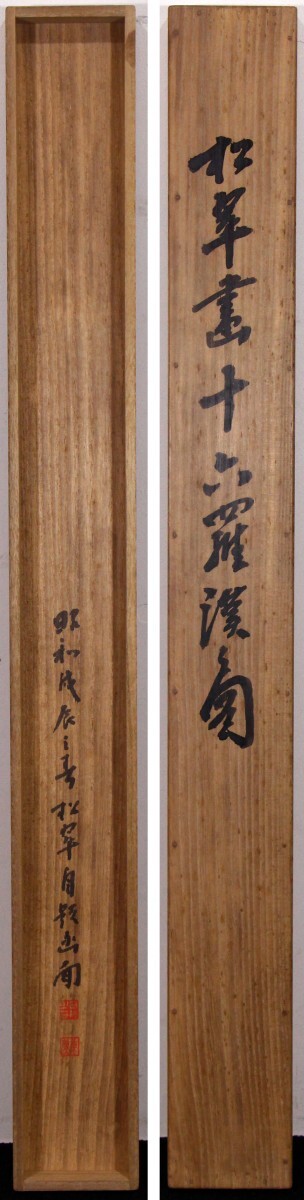 松翠畫十六羅漢之圖
昭和戊辰之春松翠自題画函